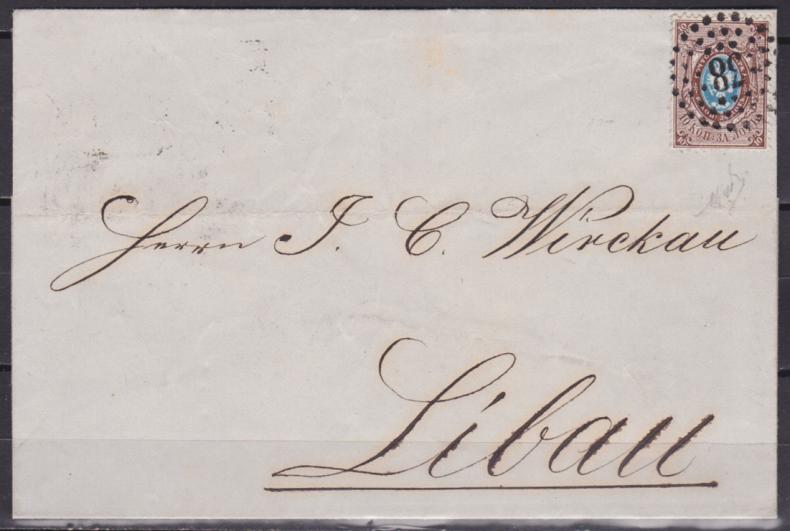 8
10 КОП. ЗА ЛОТЪ 10
Herrn J. C. Wirckau
Libau